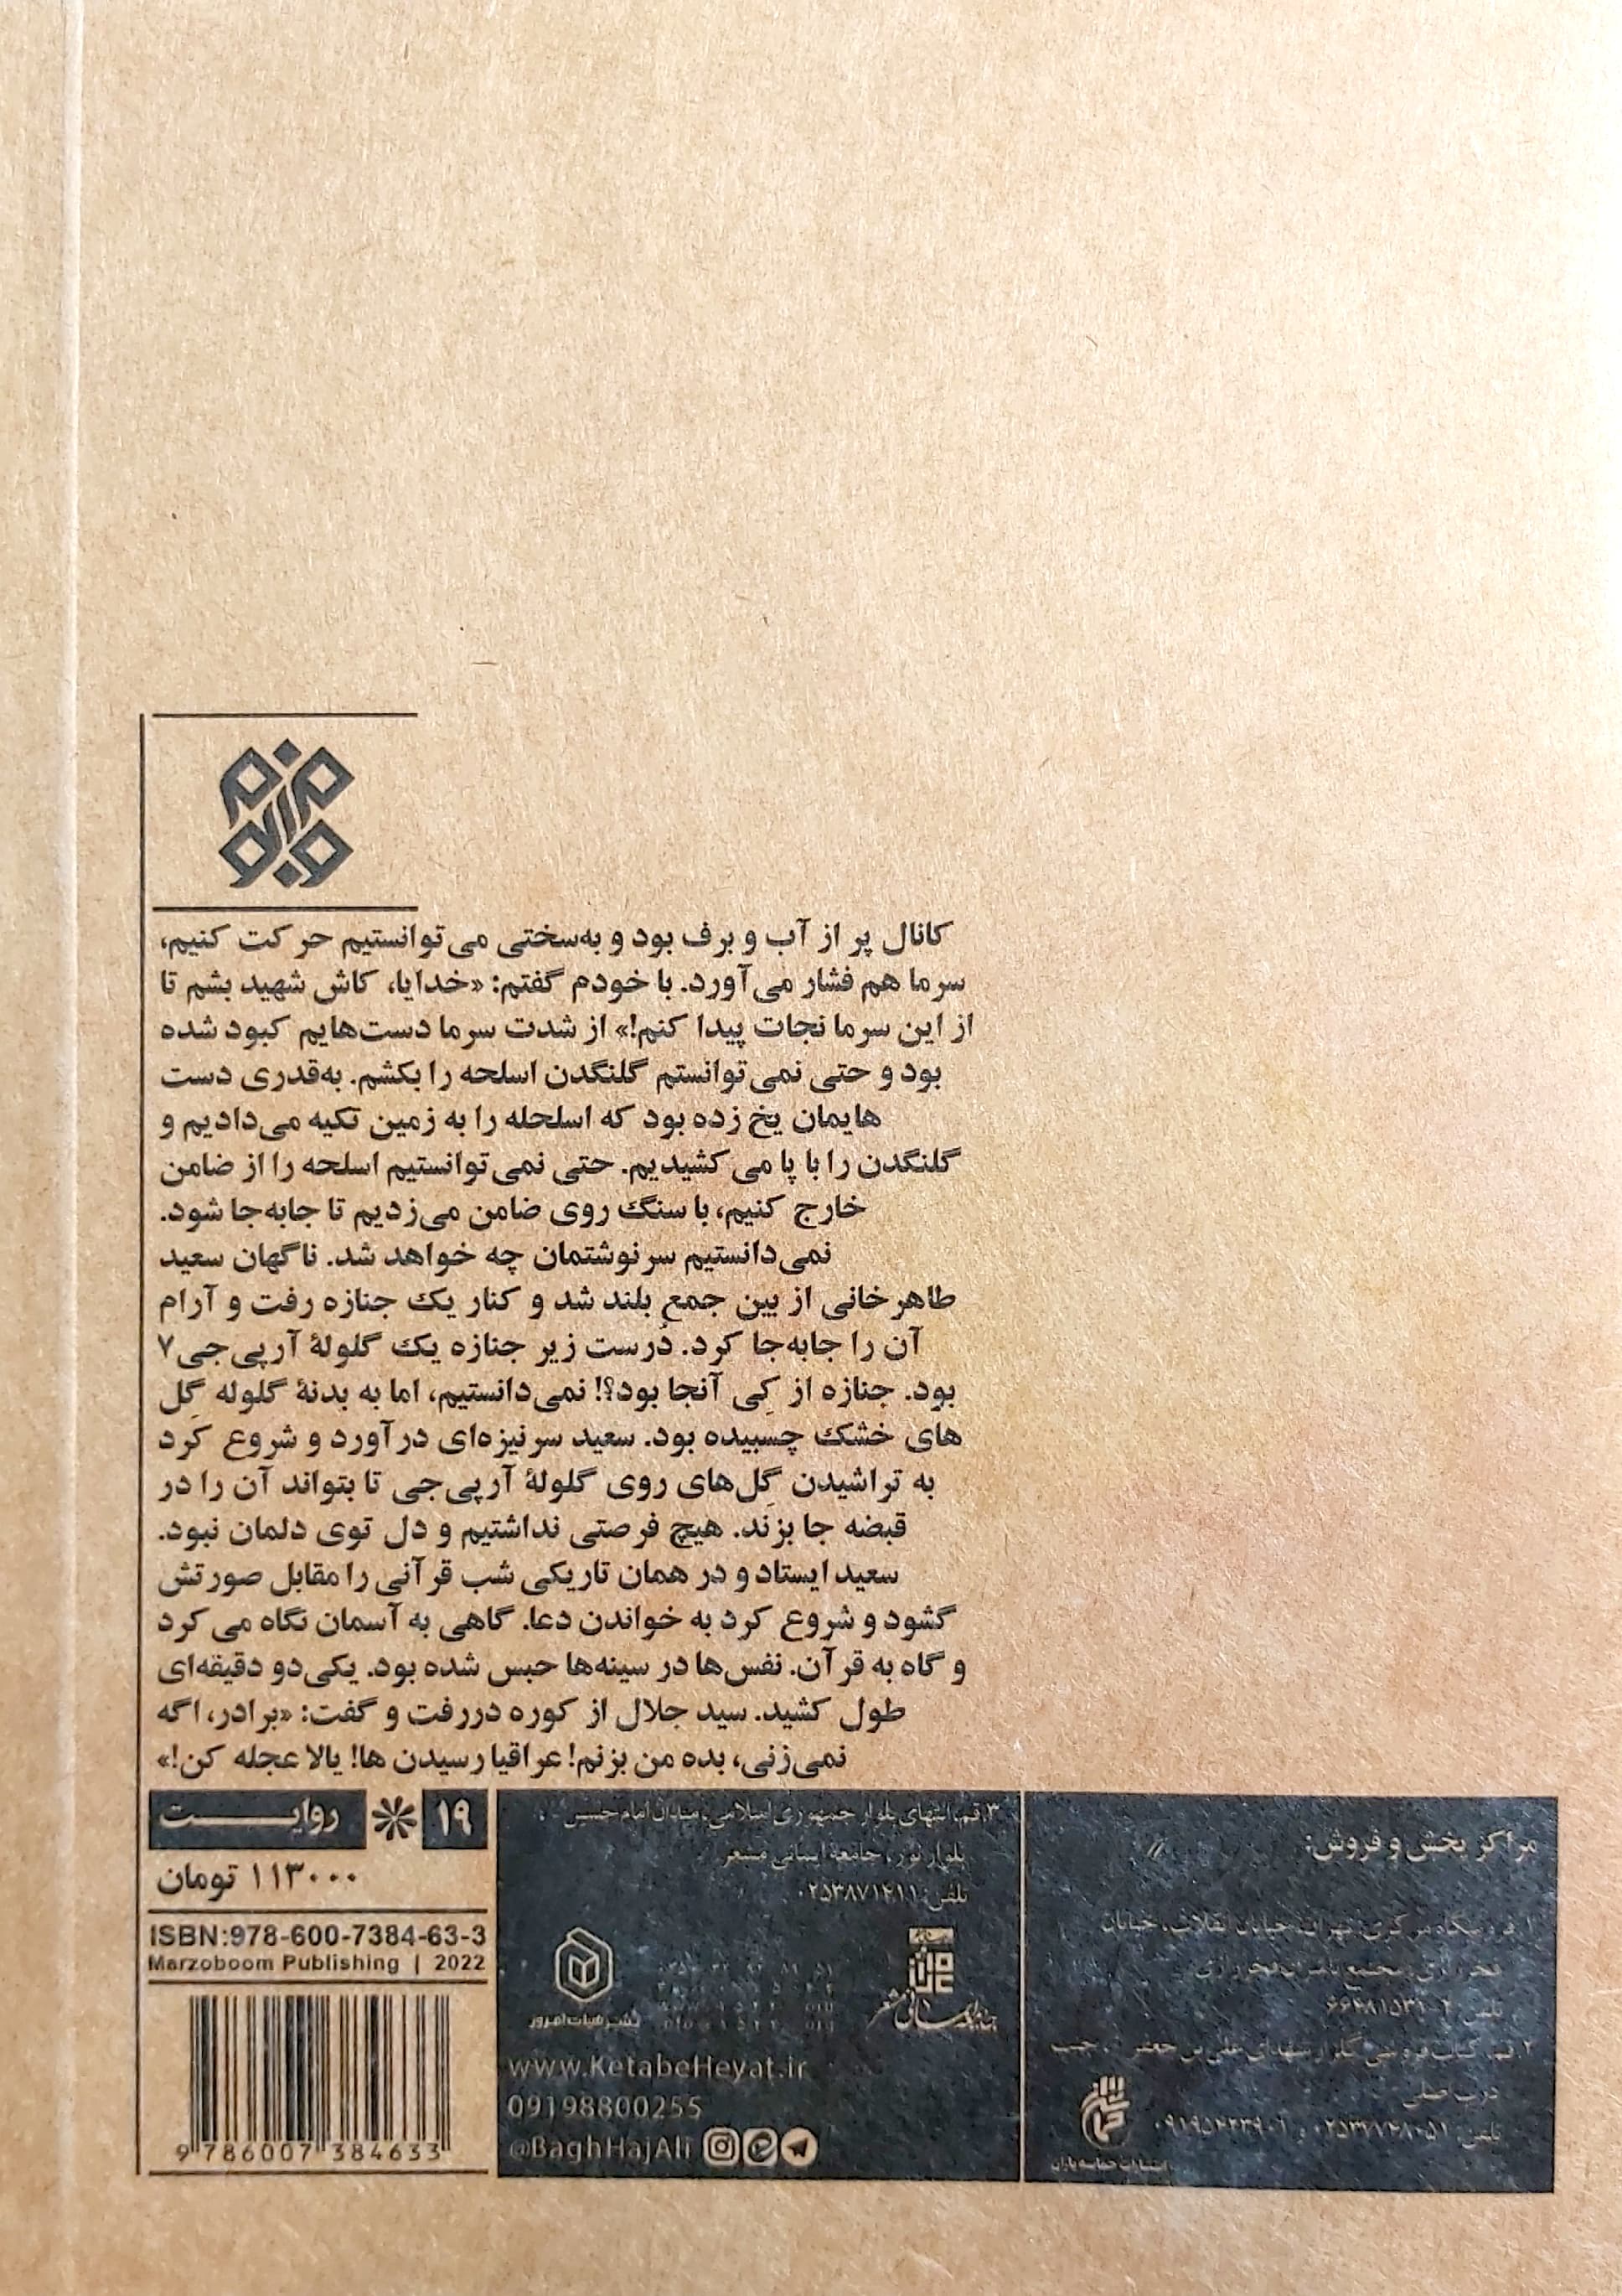 مرزوبوم
کانال پر از آب و برف بود و به‌سختی می‌توانستیم حرکت کنیم،
سرما هم فشار می‌آورد. با خودم گفتم: «خدایا، کاش شهید بشم تا
از این سرما نجات پیدا کنم!» از شدت سرما دست‌هایم کبود شده
بود و حتی نمی‌توانستم گلنگدن اسلحه را بکشم. به‌قدری دست
هایمان یخ زده بود که اسلحله را به زمین تکیه می‌دادیم و
گلنگدن را با پا می‌کشیدیم. حتی نمی‌توانستیم اسلحه را از ضامن
خارج کنیم، با سنگ روی ضامن می‌زدیم تا جابه‌جا شود.
نمی‌دانستیم سرنوشتمان چه خواهد شد. ناگهان سعید
طاهرخانی از بین جمع بلند شد و کنار یک جنازه رفت و آرام
آن را جابه‌جا کرد. دُرست زیر جنازه یک گلولهٔ آرپی‌جی۷
بود. جنازه از کِی آنجا بود؟! نمی‌دانستیم، اما به بدنهٔ گلوله گِل
های خشک چسبیده بود. سعید سرنیزه‌ای درآورد و شروع کرد
به تراشیدن گِل‌های روی گلولهٔ آرپی‌جی تا بتواند آن را در
قبضه جا بزند. هیچ فرصتی نداشتیم و دل توی دلمان نبود.
سعید ایستاد و در همان تاریکی شب قرآنی را مقابل صورتش
گشود و شروع کرد به خواندن دعا. گاهی به آسمان نگاه می‌کرد
و گاه به قرآن. نفس‌ها در سینه‌ها حبس شده بود. یکی‌دو دقیقه‌ای
طول کشید. سید جلال از کوره دررفت و گفت: «برادر، اگه
نمی‌زنی، بده من بزنم! عراقیا رسیدن ها! یالا عجله کن!»
روایت ۱۹
۱۱۳۰۰۰ تومان
ISBN:978-600-7384-63-3
Marzoboom Publishing | 2022
9 786007 384633
مراکز پخش و فروش:
۱. فروشگاه مرکزی: تهران، خیابان انقلاب، خیابان
فخر رازی، مجتمع ناشران فخر رازی
تلفن:
۲. قم، کتاب فروشی گلزار شهدای علی بن جعفر، جنب
درب اصلی
تلفن:
انتشارات حماسه یاران
۳. قم، انتهای بلوار جمهوری اسلامی، میدان امام حسین
بلوار نور، جامعهٔ ایمانی مشعر
تلفن: ۰۲۵۳۸۷۱۴۱۱
جامعه ایمانی مشعر
نشر هیات امروز
www.KetabeHeyat.ir
09198800255
@BaghHajAli